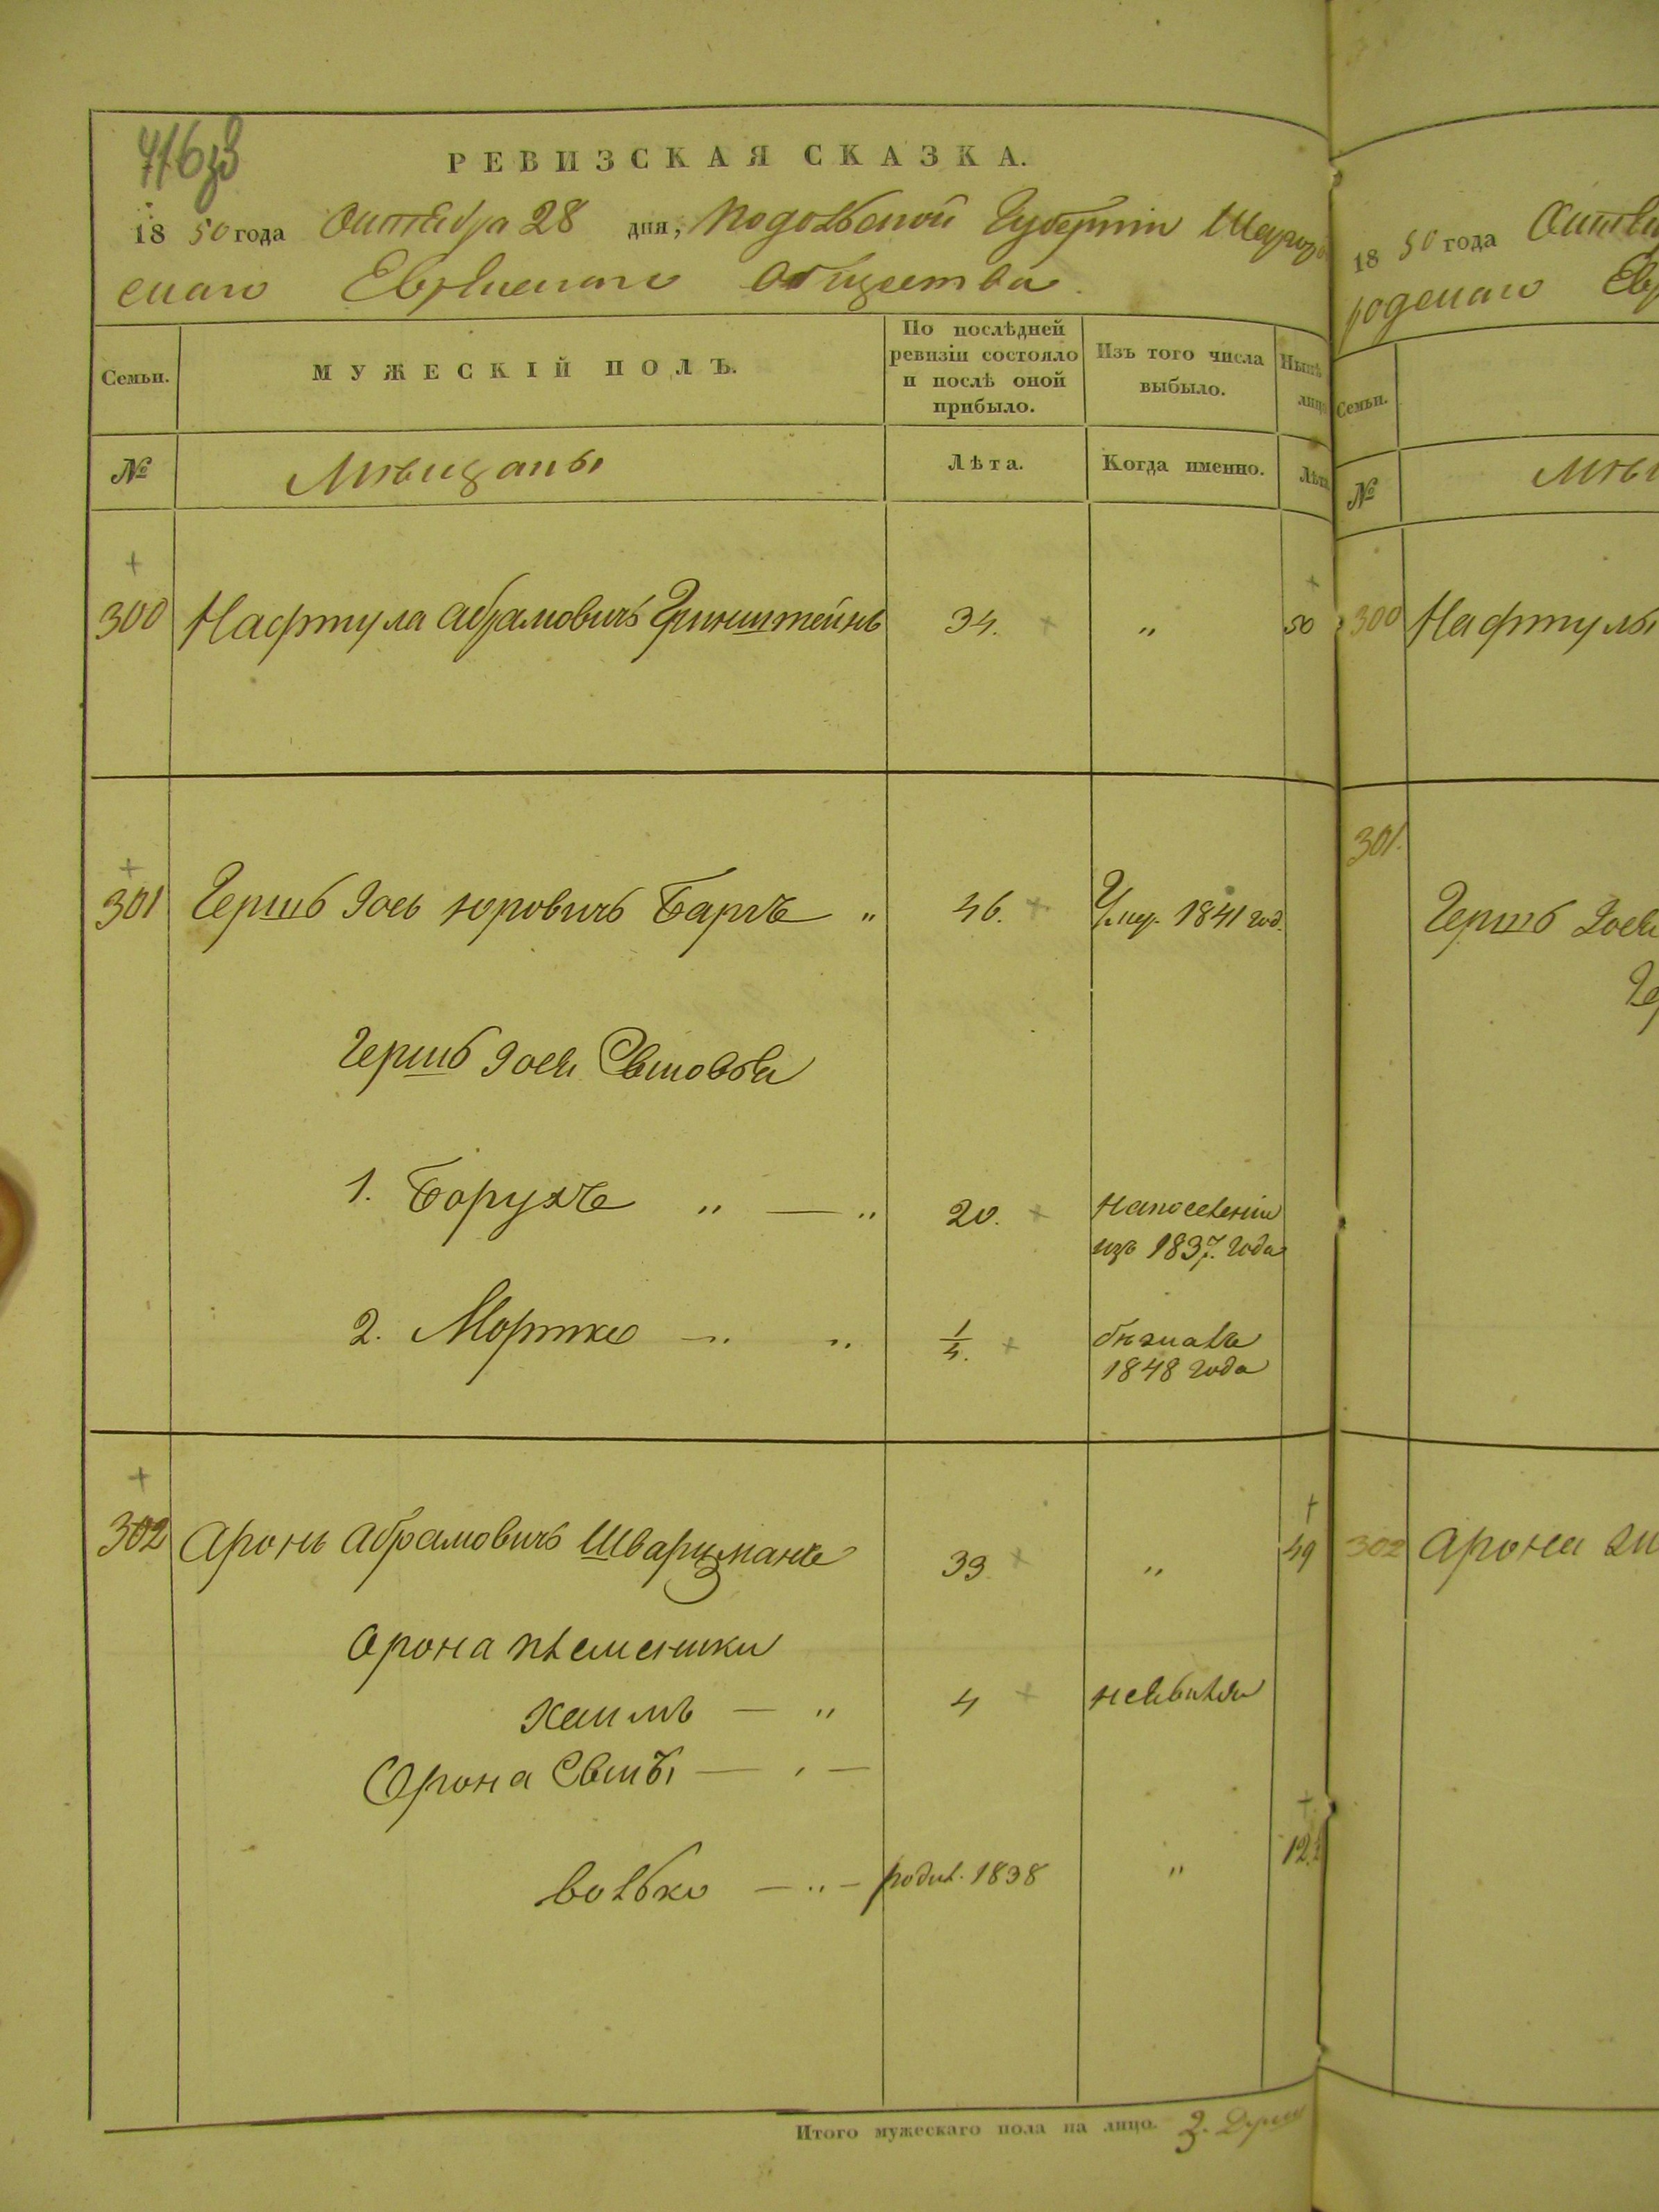 РЕВИЗСКАЯ СКАЗКА.
1850 года Октября 28 дня, Подольской Губерніи Шаргород
скаго Еврейскаго Общества
Семьи.
МУЖЕСКІЙ ПОЛЪ.
По послѣдней ревизіи состояло и послѣ оной прибыло.
Изъ того числа выбыло.
Нынѣ лицо
№
Мѣщаны
Лѣта.
Когда именно.
Лѣта
300 Нафтула Абрамовичъ Гринштейнъ 34. " 50
301 Гершъ Іось Юровичъ " 46. Умер. 1841 год.
Гершъ Іося Сыновья
1. Борухъ " — " 20. На поселеніи
изъ 1837. года
2. Мортко — " " 1/4. бѣжалъ
1848 года
302 Аронъ Абрамовичъ Шварцманъ 33 " 49
Арона племеники
Хаимъ — " 4 неявился
Орона Сынъ — " —
Волько — " — родил. 1838 " 12
Итого мужескаго пола на лицо. 2.
1850 года
родскаго
Семьи.
№
300 Нафтулы
301.
Гершъ Іося
302 Арона